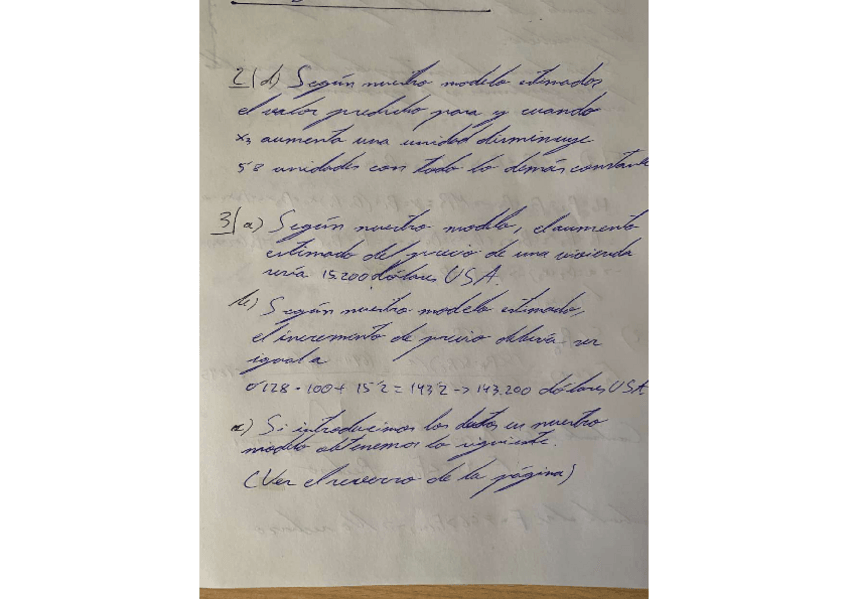 2| d) Según nuestro modelo estimados
el valor predicho para y cuando
x₃ aumenta una unidad disminuye
5'8 unidades con todo lo demás constante
3| a) Según nuestro modelo, el aumento
estimado del precio de una vivienda
sería 15.200 dólares USA.
b) Según nuestro modelo estimado,
el incremento de precio debería ser
igual a
0'128 · 100 + 15'2 = 143'2 -> 143.200 dólares USA
c) Si introducimos los datos en nuestro
modelo obtenemos lo siguiente.
(Ver el reverso de la página)